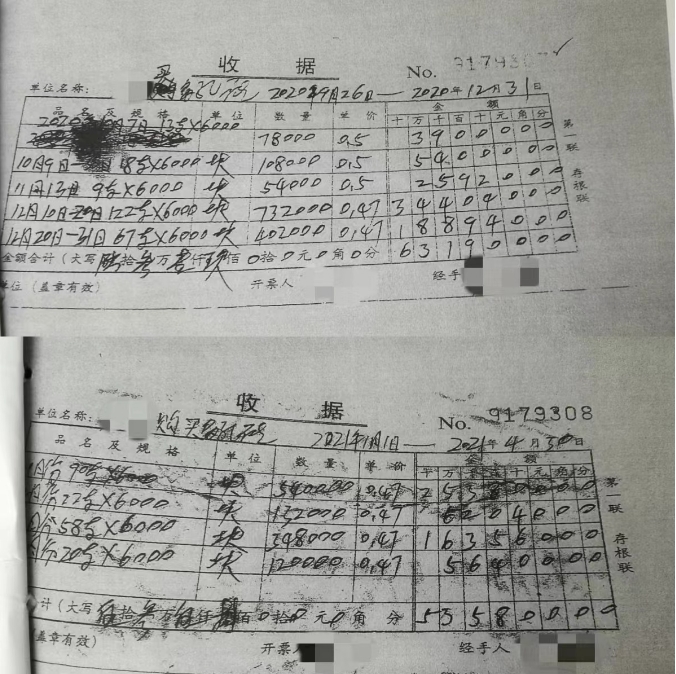 收 据
No. 917930
单位名称： 2020年9月26日 — 2020年12月31日
品名及规格 单位 数量 单价 金额
十万千百十元角分
7月 13车X6000 78000 0.5 3900000
10月9日 18车X6000 块 108000 0.5 5400000
11月13日 9车X6000 块 54000 0.5 2592000
12月10日-20日 122车X6000 块 732000 0.47 34404000
12月20日-31日 67车X6000 块 402000 0.47 18894000
金额合计（大写 陆拾叁万壹仟玖佰0拾0元0角0分 63190000
单位（盖章有效） 开票人 经手
第一联 存根联
收 据
No. 9179308
单位名称： 购买 2021年1月1日 — 2021年4月30日
品名及规格 单位 数量 单价 金额
千万千百十元角分
月份 90车X6000 块 540000 0.47 2538
月份 22车X6000 块 132000 0.47 6204000
月份 58车X6000 块 348000 0.47 16356000
月份 20车X6000 块 120000 0.47 564
计（大写 伍拾叁万伍仟捌佰0拾0元0角 分 53580000
盖章有效） 开票人 经手人
第一联 存根联